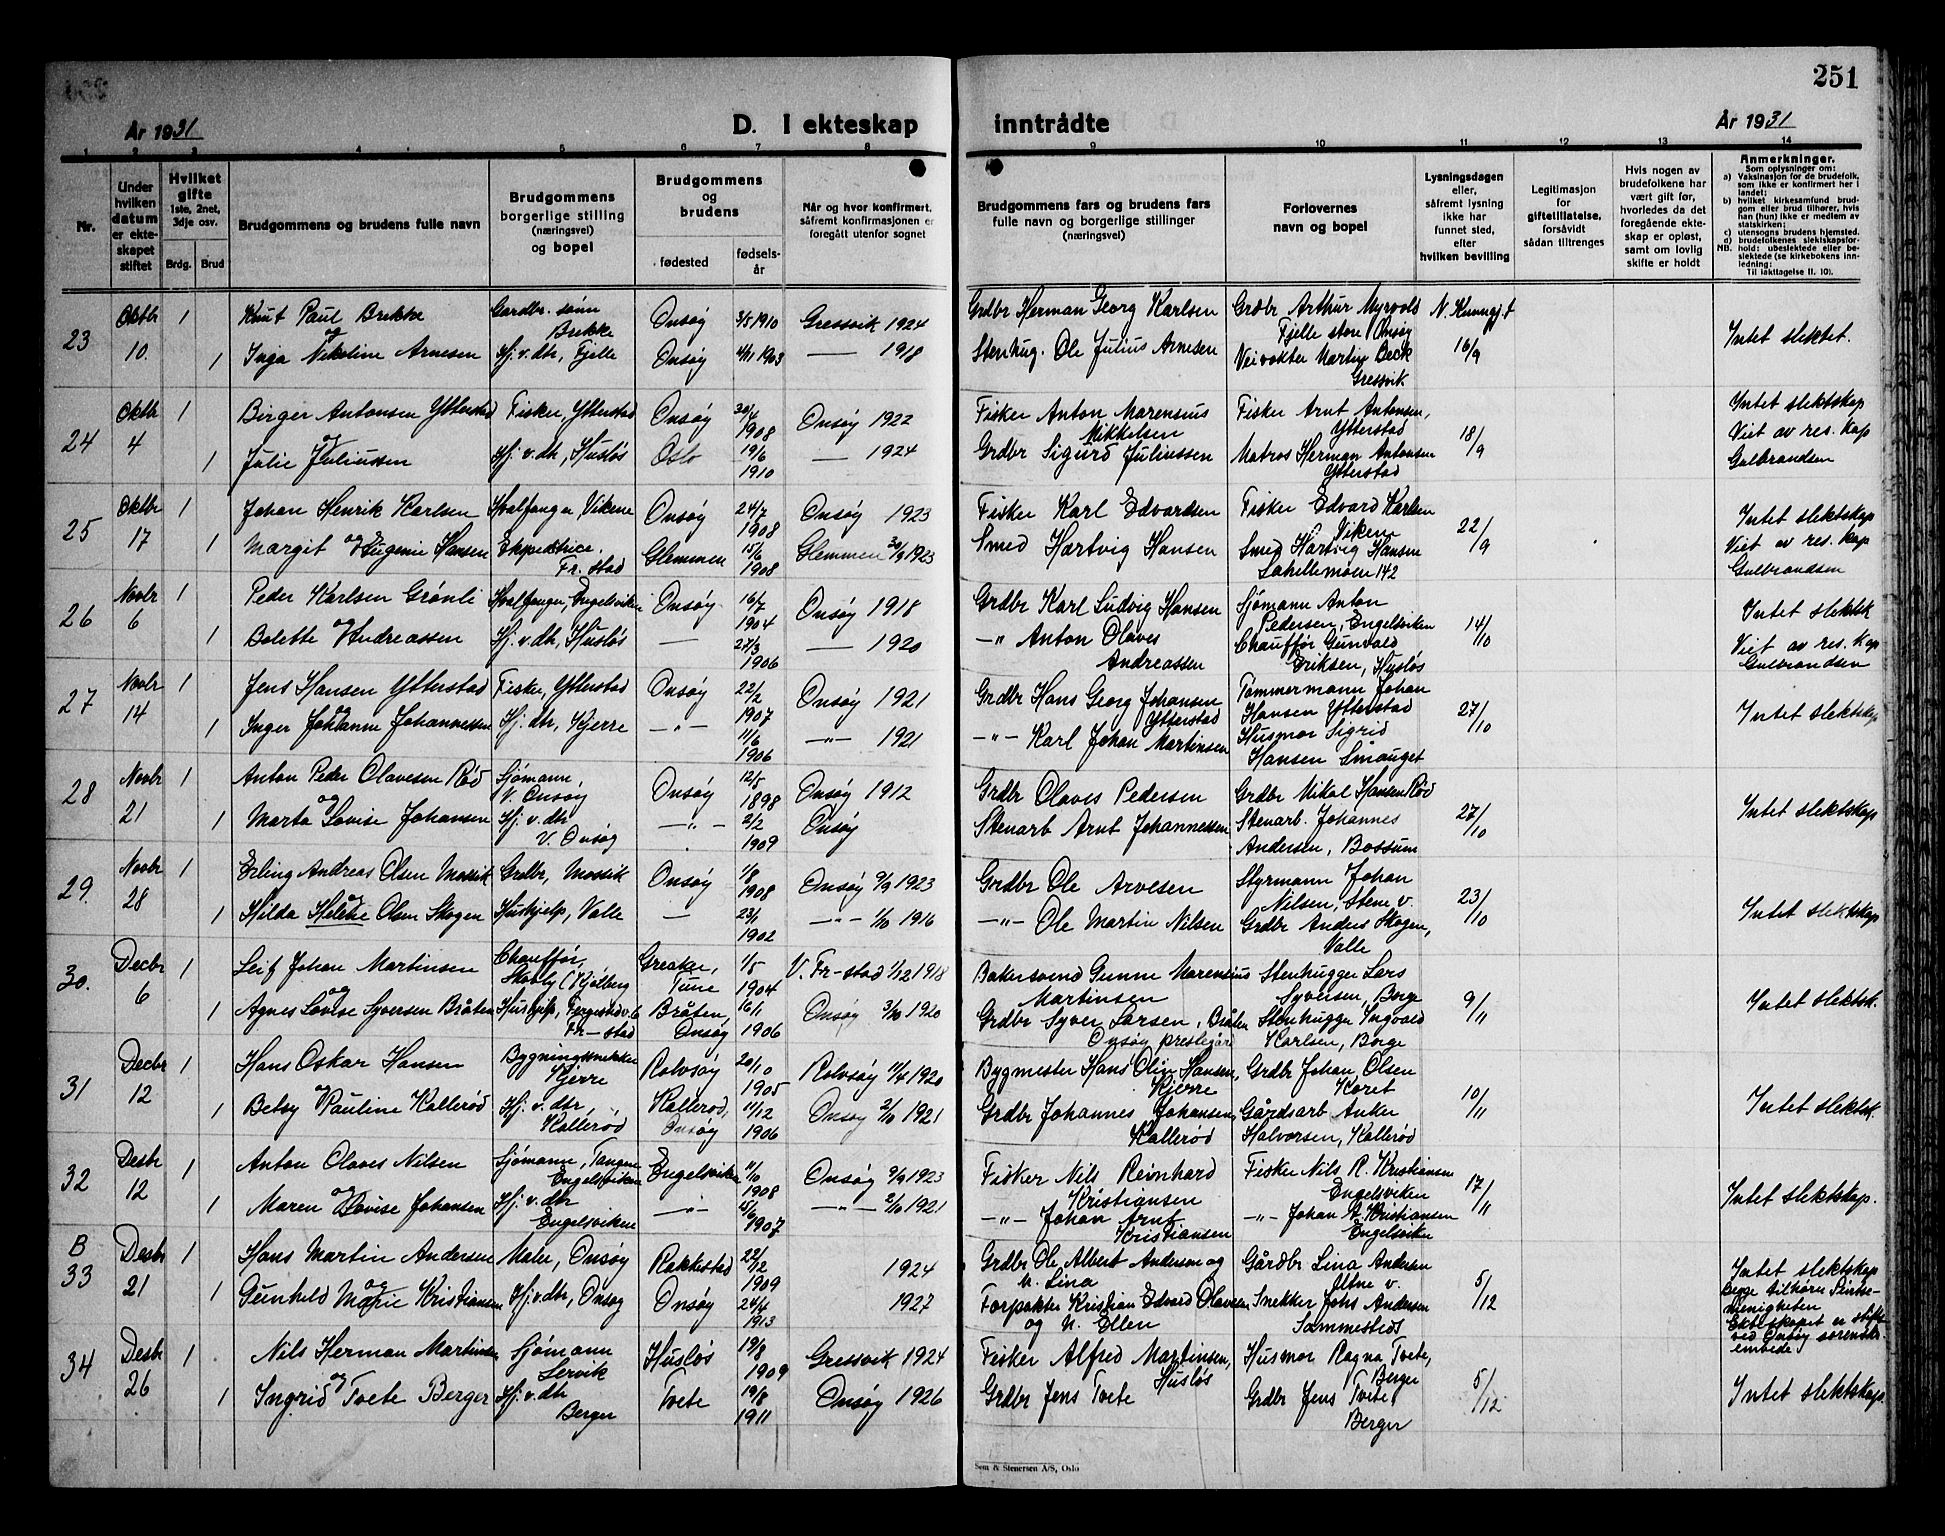 251
År 1931
D. I ekteskap inntrådte
År 1931
1 2 3 4 5 6 7 8 9 10 11 12 13 14
Nr.
Under hvilken datum er ekteskapet stiftet
Hvilket gifte
1ste, 2net, 3dje osv.
Brdg. Brud
Brudgommens og brudens fulle navn
Brudgommens borgerlige stilling (næringsvei) og bopel
Brudgommens og brudens
fødested
fødselsår
Når og hvor konfirmert,
såfremt konfirmasjonen er foregått utenfor sognet
Brudgommens fars og brudens fars
fulle navn og borgerlige stillinger (næringsvei)
Forlovernes navn og bopel
Lysningsdagen eller, såfremt lysning ikke har funnet sted, efter hvilken bevilling
Legitimasjon for giftetillatelse, forsåvidt sådan tiltrenges
Hvis nogen av brudefolkene har vært gift før, hvorledes da det foregående ekteskap er opløst, samt om lovlig skifte er holdt
Anmerkninger.
Som oplysninger om:
a) Vaksinasjon for de brudefolk, som ikke er konfirmert her i landet;
b) hvilket kirkesamfund brudgom eller brud tilhører, hvis han (hun) ikke er medlem av statskirken;
c) utensogns brudens hjemsted.
d) brudefolkenes slektskapsforhold: ubeslektede eller beslektede (se kirkebokens innledning;
NB.
Til iakttagelse II. 10).
23 Oktbr 10. 1 Knut Paul Brekke Gardbr. sønn Brekke Onsøy 3/5 1910 Gressvik 1924 Grdbr Herman Georg Karlsen Grdbr Arthur Myrvold Fjelle store Onsøy 16/9 Intet slektet.
og
1 Inga Nikoline Arnesen Hj. v. dtr, Fjelle Onsøy 4/11 1903 — 1918 Stenhug. Ole Julius Arnesen Veivokter Martin Beck Gressvik
24 Oktbr 4 1 Birger Antonsen Ytterstad Fisker, Ytterstad Onsøy 30/4 1908 Onsøy 1922 Fisker Anton Marensius Mikkelsen Fisker Arnt Antonsen, Ytterstad 18/9 Intet slektskap Viet av res. kap Gulbrandsen
og
1 Julie Juliussen Hj. v. dtr, Husløs Oslo 19/6 1910 — 1924 Grdbr Sigurd Juliussen Matros Herman Antonsen Ytterstad
25 Oktbr 17 1 Johan Henrik Karlsen Hvalfanger, Vikene Onsøy 24/7 1908 Onsøy 1923 Fisker Karl Edvardsen Fisker Edvard Karlsen Viken 22/9 Intet slektskap Viet av res. kap Gulbrandsen
og
1 Margit Eugenie Hansen Ekspeditrice. Fr.stad Glemmen 15/6 1908 Glemmen 30/9 1923 Smed Hartvig Hansen Smed Hartvig Hansen Lahellemoen 142
26 Novbr 6 1 Peder Karlsen Grønli Hvalfanger, Engelsviken Onsøy 16/7 1904 Onsøy 1918 Grdbr Karl Ludvig Hansen Sjømann Anton Pedersen, Engelsviken 14/10 Intet slektsk Viet av res. kap Gulbrandsen
og
1 Bolette Andreassen Hj. v. dtr, Husløs — 27/3 1906 — 1920 —"— Anton Olaves Andreassen Chauffør Gunvald Eriksen, Husløs
27 Novbr 14 1 Jens Hansen Ytterstad Fisker, Ytterstad Onsøy 22/2 1907 Onsøy 1921 Grdbr Hans Georg Johansen Ytterstad Tømmermann Johan Hansen Ytterstad 27/10 Intet slektskap
og
1 Inger Johanne Johannessen Hj. dtr, Kjerre —"— 11/6 1906 —"— 1921 —"— Karl Johan Martinsen Husmor Sigrid Hansen Smauget
28 Novbr 21 1 Anton Peder Olavesen Rød Sjømann, V. Onsøy Onsøy 12/5 1898 Onsøy 1912 Grdbr Olaves Pedersen Grdbr Mikal Hansen Rød 27/10 Intet slektskap
og
1 Marta Lovise Johansen Hj. v. dtr V. Onsøy —"— 2/2 1909 Onsøy Stenarb Arnt Johannessen Stenarb. Johannes Andersen, Bossum
29. Novbr 28 1 Erling Andreas Olsen Mossik Grdbr, Mossik Onsøy 1/8 1908 Onsøy 9/9 1923 Grdbr Ole Arvesen Styrmann Johan Nilsen, Stene v. 23/10 Intet slektskap
og
1 Hilda Helene Olsen Skogen Hushjelp, Valle — 23/1 1902 —"— 1/10 1916 —"— Ole Martin Nilsen Grdbr Anders Skogen, Valle
30. Decbr 6 1 Leif Johan Martinsen Chauffør, Kjølberg Greaker, Tune 1/5 1904 V. Fr-stad 1/12 1918 Bakersvend Gunne Marensius Martinsen Stenhugger Lars Syversen, Borge 9/11 Intet slektsk.
og
1 Agnes Lovise Syversen Bråten Hushjelp, Fr-stad Bråten, Onsøy 16/1 1906 Onsøy 3/10 1920 Grdbr Syver Larsen, Bråten Onsøy prestegård Stenhugger Ingvald Karlsen, Borge
31 Decbr 12 1 Hans Oskar Hansen Bygningssnekker Kjerre Rolvsøy 20/10 1905 Rolvsøy 11/4 1920 Bygmester Hans Olin Hansen, Kjerre Grdbr Johan Olsen Koret 10/11 Intet slektsk.
og
1 Betsy Pauline Kallerød Hj. v. dtr, Kallerød Kallerød, Onsøy 11/12 1906 Onsøy 2/10 1921 Grdbr Johannes Johansen Kallerød Gårdsarb Anker Halvorsen, Kallerød
32 Desbr 12 1 Anton Olaves Nilsen Sjømann, Tangen Engelsviken Engelsviken 11/10 1908 Onsøy 9/9 1923 Fisker Nils Reinhard Kristiansen Fisker Nils R. Kristiansen Engelsviken 17/11 Intet slektskap.
og
1 Maren Lovise Johansen Hj. v. dtr Engelsviken —"— 15/6 1907 —"— 2/10 1921 —"— Johan Arnt Kristiansen —"— Johan A Kristiansen Engelsviken
B 33 Desbr 21 1 Hans Martin Andersen Maler, Onsøy Rakkestad 22/12 1909 1924 Grdbr Ole Albert Andersen og h. Lina Gårdbr Lina Andersen 5/12 Intet slektskap Begge tilhører Pinsemenigheten Ekteskapet er stiftet ved Onsøy sorenskr. embede
og
1 Gunhild Marie Kristiansen Hj.v.dtr, Onsøy Onsøy 24/4 1913 1927 Forpakter Kristian Edvard Olavesen og h. Ellen Snekker Johs Andersen Sammesteds
34 Desbr 26 1 Nils Herman Martinsen Sjømann Lervik Husløs 19/8 1909 Gressvik 1924 Fisker Alfred Martinsen, Husløs Husmor Ragna Tvete, Berger 5/12 Intet slektskap.
og
1 Ingrid Tvete Berger Hj. v. dtr Berger Tvete 19/8 1911 Onsøy 1926 Grdbr Jens Tvete Grdbr Jens Tvete, Berger
Sem & Stenersen A/S, Oslo